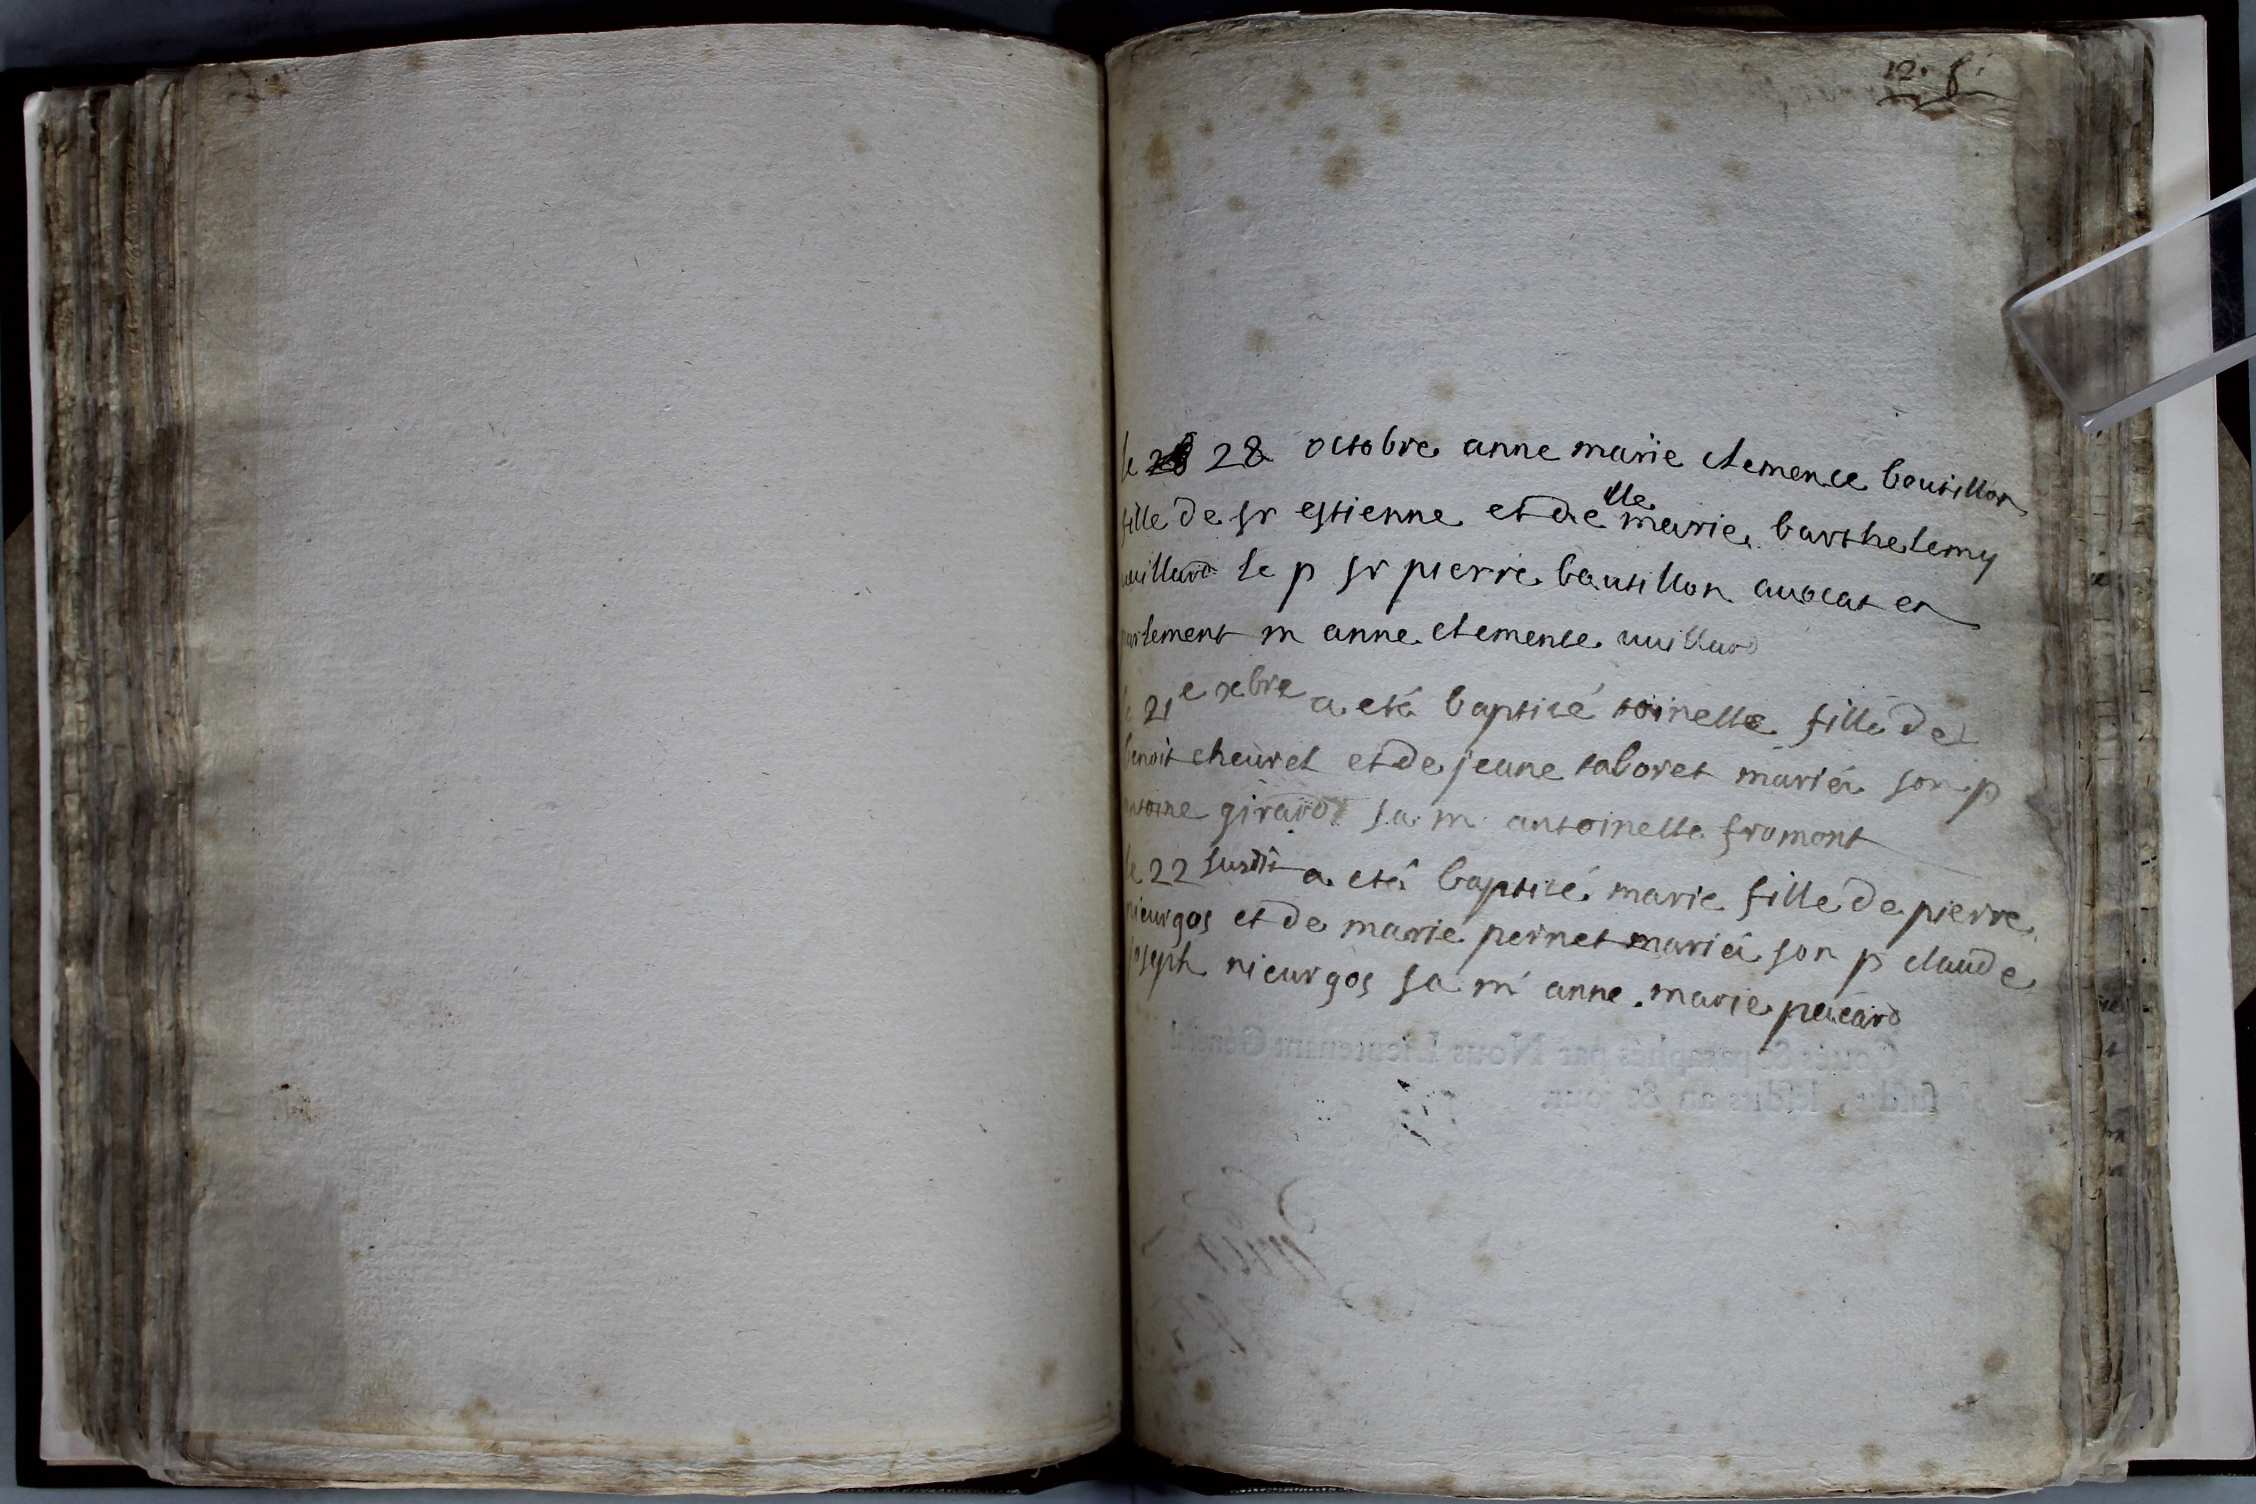 12. f.
le 28 octobre anne marie clemence boutillon
fille de sr estienne et de dlle marie barthelemy
vuillard le p sr pierre boutillon auocat en
parlement m anne clemence vuillard
le 21e xbre a eté baptisé toinette fille de
benoit cheuret et de jeane taboret mariéz son p
antoine girardt sa m antoinette fromont
le 22 susdit a eté baptisé marie fille de pierre
nieurgos et de marie pernet mariéz son p claude
joseph nieurgos sa m anne marie pecard
Cotté & paraphés par Nous Lieutenant Général
susdit, lesdits an & jour.